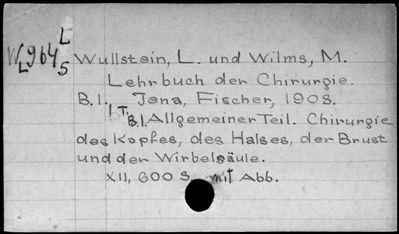 L
WL964
5
Wullstein, L. und Wilms, M.
Lehrbuch der Chirurgie.
B.I. Jena, Fischer, 1908.
I.T.
B.I. Allgemeiner Teil. Chirurgie
des Kopfes, des Halses, der Brust
und der Wirbelsäule.
XII, 600 S. mit Abb.